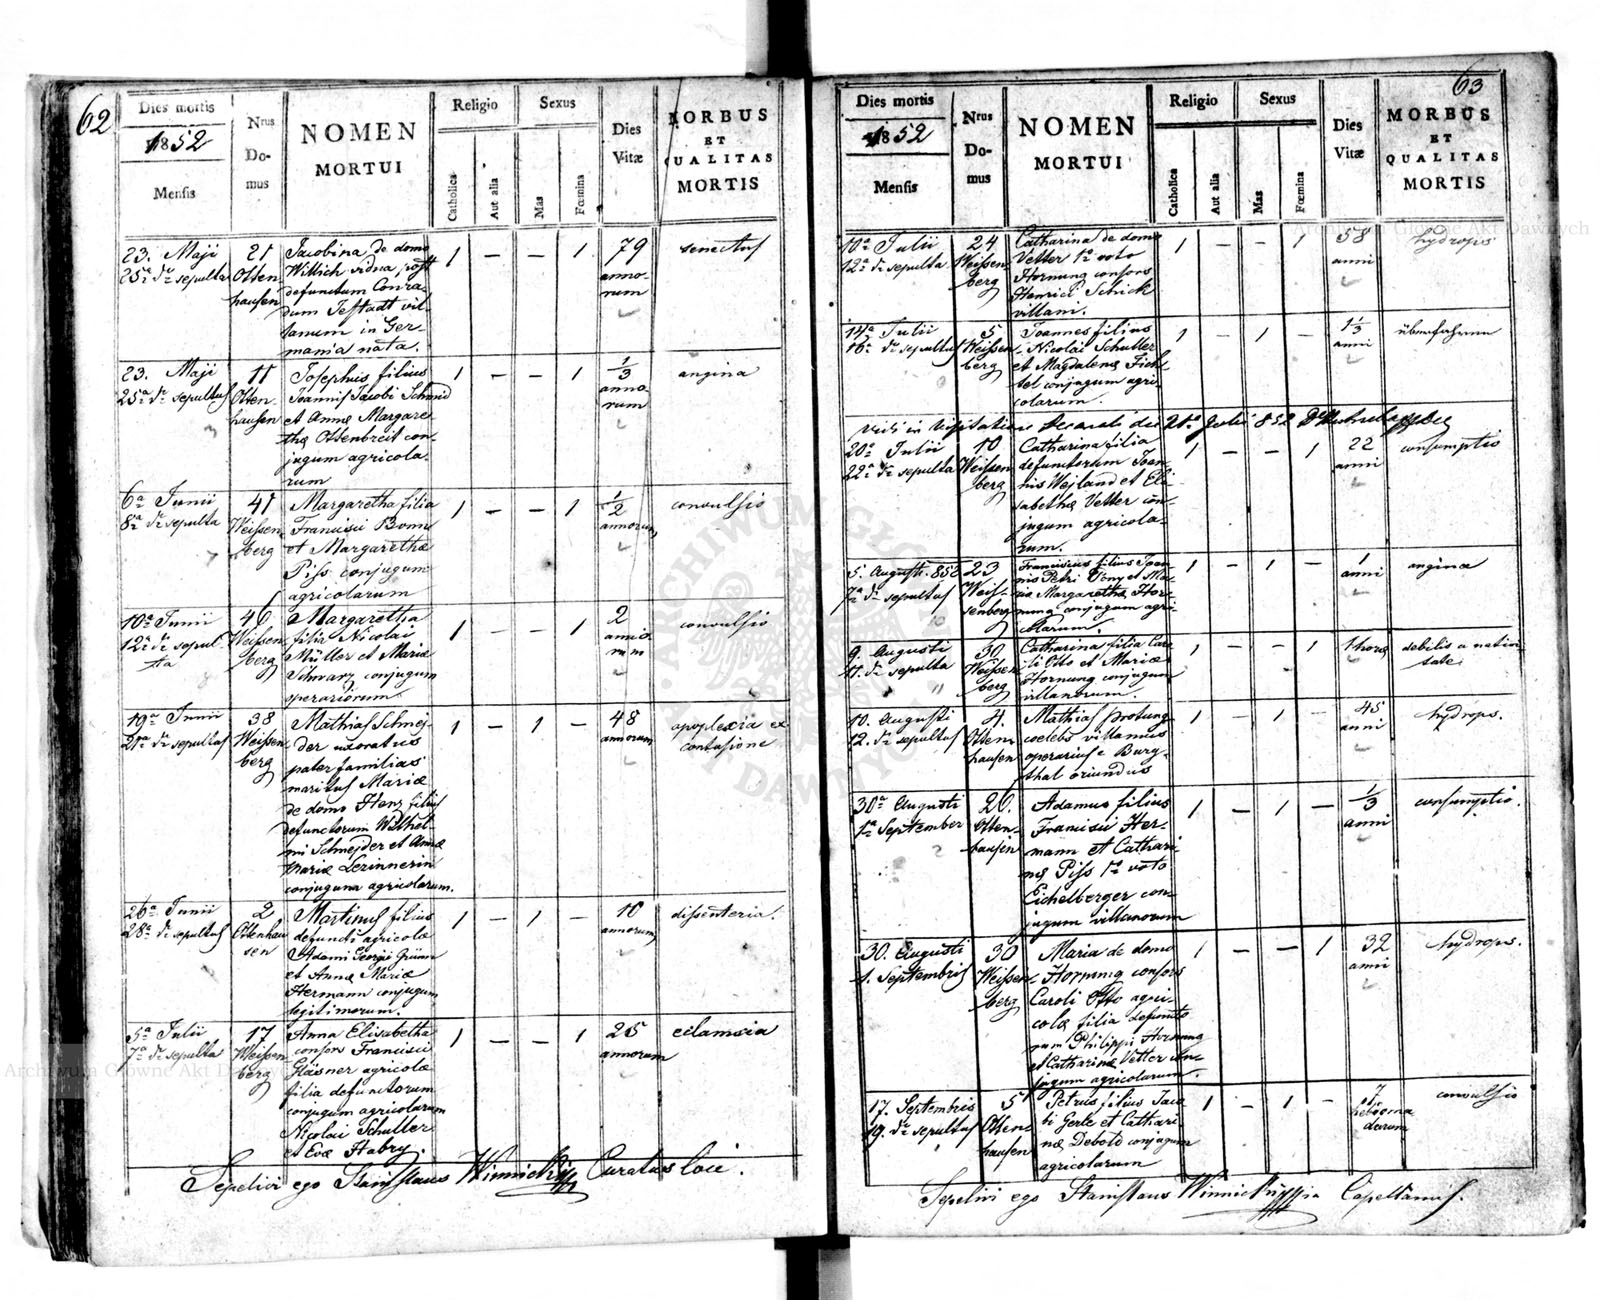 62
Dies mortis
1852
Mensis
Nrus
Do-
mus
NOMEN
MORTUI
Religio
Catholica
Aut alia
Sexus
Mas
Fœmina
Dies
Vitæ
MORBUS
ET
QUALITAS
MORTIS
23. Maji
25a dr sepulta
21
Otten
hausen
Jacobina de domo
Wittich vidua post
defunctum Conra-
dum Testadt vil-
lanum in Ger-
mania nata.
1 — — 1
79
anno-
rum
senectus
23. Maji
25a dr sepultus
11
Otten-
hausen
Josephus filius
Joannis Jacobi Schmid
et Annæ Margare-
thæ Ottenbreit con-
jugum agricola-
rum
1 — — 1
1/3
anno-
rum
angina
6a Junii
8a dr sepulta
41
Weissen
berg
Margaretha filia
Francisci Bonn
et Margarethæ
Piss conjugum
agricolarum
1 — — 1
1/2
annorum
convulsio
10a Junii
12a dr sepul-
ta
46
Weissen
berg
Margaretha
filia Nicolai
Müller et Mariæ
Schwarz conjugum
operariorum
1 — — 1
2
anno
rum
convulsio
19a Junii
21a dr sepultus
38
Weissen
berg
Mathias Schnej-
der uxoratus
pater familias
maritus Mariæ
de domo Henz filius
defunctorum Wilhel-
mi Schnejder et Annæ
Mariæ Lezinnerin
conjugum agricolarum.
1 — 1 —
48
annorum
apoplexia ex
contusione
26a Junii
28a dr sepultus
2
Ottenhau
sen
Martinus filius
defuncti agricolæ
Adami Georgii Grünn
et Annæ Mariæ
Hermann conjugum
legitimorum.
1 — 1 —
10
annorum
dissenteria.
5a Julii
7a dr sepulta
17
Weissen-
berg
Anna Elisabetha
consors Francisci
Gläsner agricolæ
filia defunctorum
conjugum agricolarum
Nicolai Schuller
et Evæ Habry.
1 — — 1
25
annorum
eclamsia
Sepelivi ego Stanislaus Winnicki Curatus loci.
63
Dies mortis
1852
Mensis
Nrus
Do-
mus
NOMEN
MORTUI
Religio
Catholica
Aut alia
Sexus
Mas
Fœmina
Dies
Vitæ
MORBUS
ET
QUALITAS
MORTIS
10a Julii
12a dr sepulta
24
Weissen
berg
Catharina de domo
Vetter 1o voto
Hornung consors
Henrici Schick
villani.
1 — — 1
58
anni
hydrops
14a Julii
16a dr sepultus
5
Weissen
berg
Joannes filius
Nicolai Schuller
et Magdalenæ Fich-
tel conjugum agri-
colarum.
1 — 1 —
1/3
anni
Vidi in visitatione Decanali die 21a Julii 852
20a Julii
22a dr sepulta
10
Weissen
berg
Catharina filia
defunctorum Joan-
nis Wejland et Eli-
sabethæ Vetter con-
jugum agricola-
rum.
1 — — 1
22
anni
consumptio
5. Augusti 852
7a dr sepultus
23
Weis-
senberg
Franciscus filius Joan-
nis Petri Pony et Ma-
riæ Margarethæ Hor-
nung conjugum agri-
colarum.
1 — 1 —
1
anni
angina
9. Augusti
11. dr sepulta
30
Weissen
berg
Catharina filia Caro-
li Otto et Mariæ
Hornung conjugum
villanorum.
1 — — 1
1 horæ
debilis a nativi
tate
10. Augusti
12. dr sepultus
4.
Otten
hausen
Mathias Protung
coelebs villanus
operarius e Burg-
thal oriundus
1 — 1 —
45
anni
hydrops.
30a Augusti
1a September
26.
Otten-
hausen
Adamus filius
Francisci Her-
mann et Cathari-
næ Piss 1o voto
Eichelberger con-
jugum villanorum
1 — 1 —
1/3
anni
consumptio.
30. Augusti
1. Septembris
30
Weissen
berg
Maria de domo
Hornung consors
Caroli Otto agri-
colæ filia defuncto
rum Philippi Hornung
et Catharinæ Vetter con-
jugum agricolarum.
1 — — 1
32
anni
hydrops.
17. Septembris
19. dr sepultus
5
Otten-
hausen
Petrus filius Jaco-
bi Gerle et Cathari-
næ Debold conjugum
agricolarum
1 — 1 —
7
hebdoma
darum
convulsio
Sepelivi ego Stanislaus Winnicki Capellanus.
ARCHIWUM GŁÓWNE AKT DAWNYCH
Archiwum Główne Akt Dawnych
Archiwum Główne Akt Dawnych